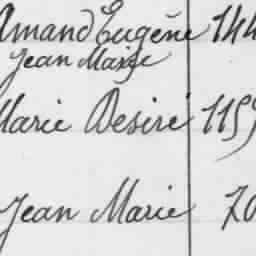 Amand Eugène 144
Jean Marie
Marie Desiré 1159
Jean Marie 70